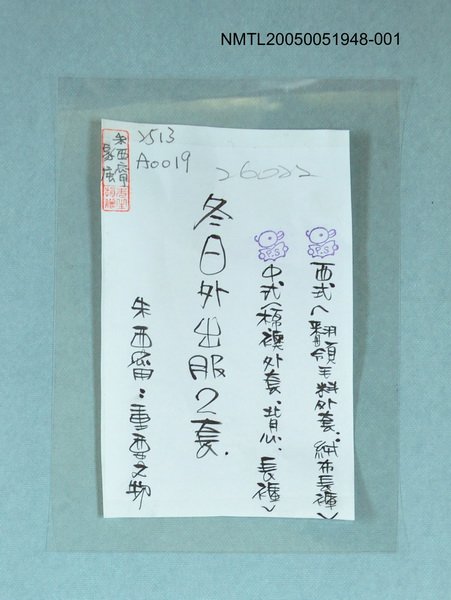 NMTL20050051948-001
2513
A0019
26022
朱西甯
家屬
P.S
西式(翻領毛料外套、絨布長褲)
P.S
中式(棉襖外套、背心、長褲)
冬日外出服2套.
朱西甯:重要文物